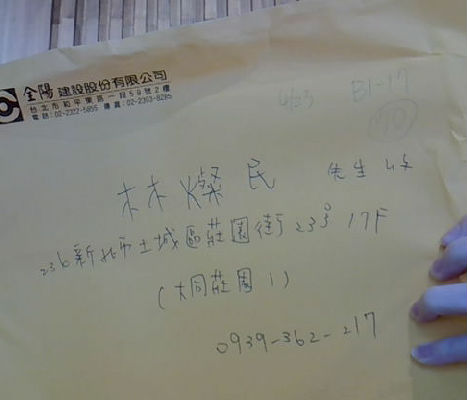 全陽建設股份有限公司
台北市和平東路一段59號2樓
電話:02-2322-5855 傳真:02-2393-8285
B1-17
70
林燦民 先生 收
236新北市土城區莊園街23号17F
(大同莊園1)
0939-362-217